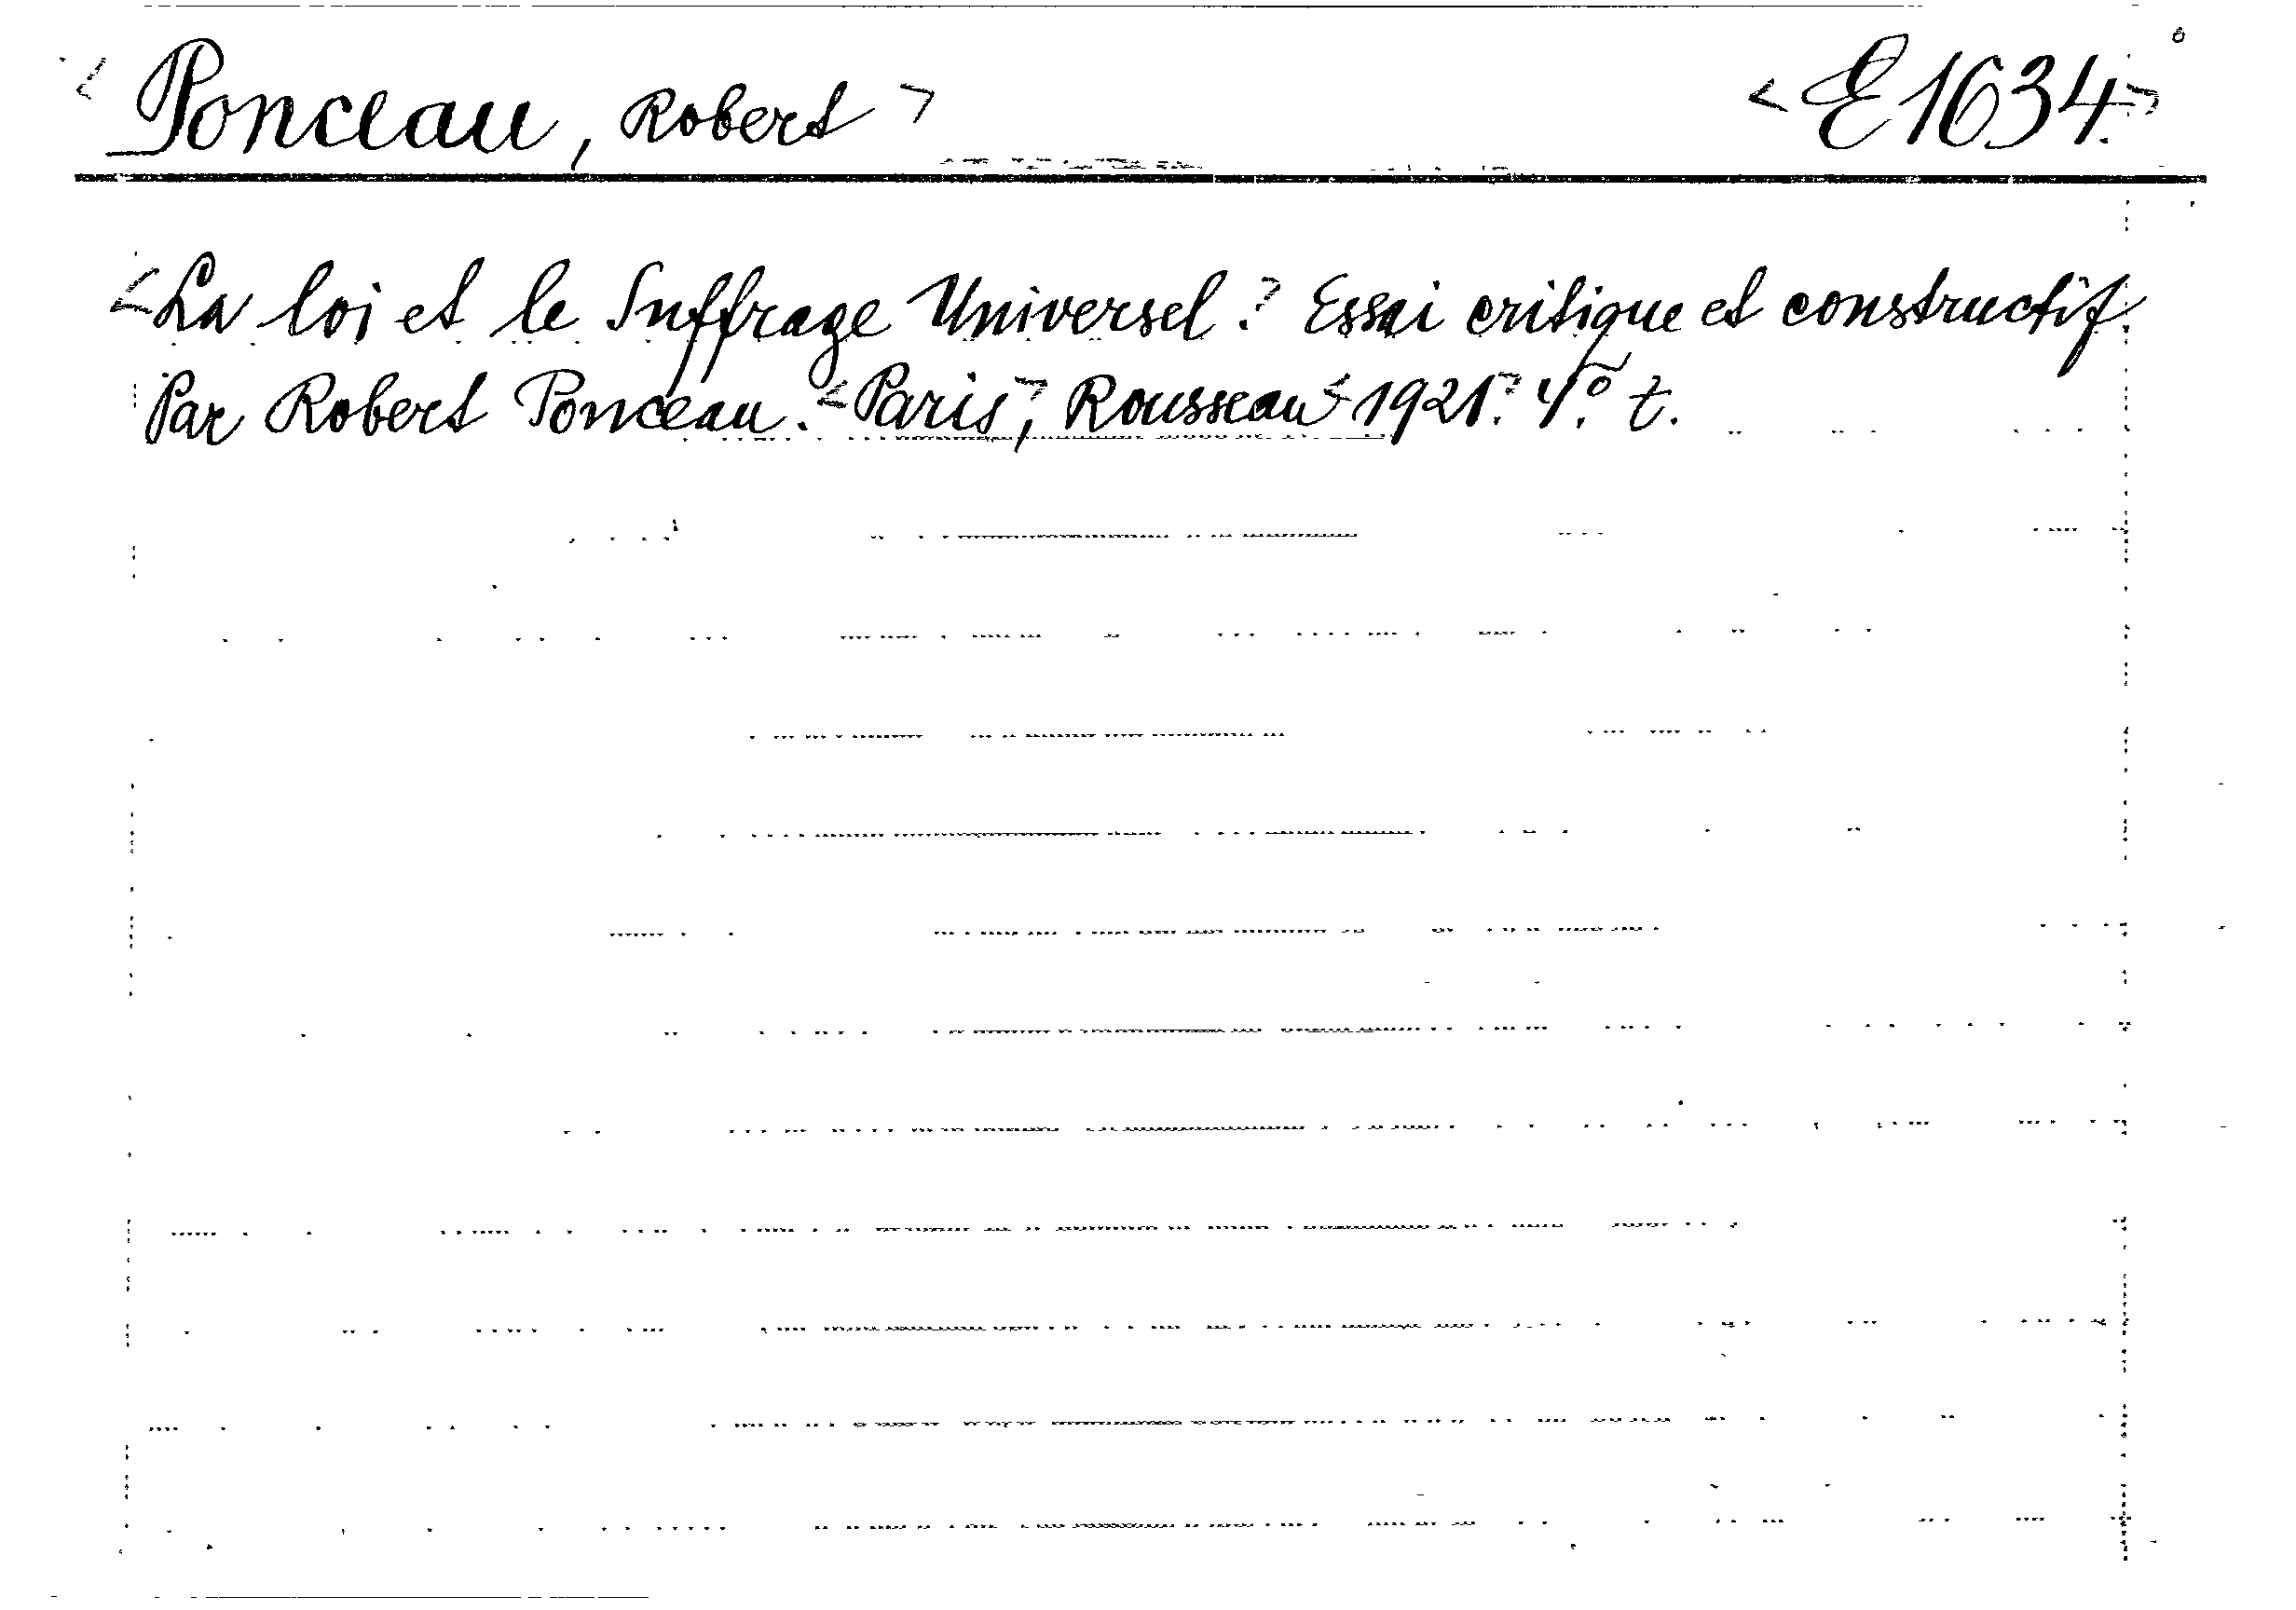 < Ponceau, Robert > < E 1634. >
< La loi et le Suffrage Universel. > Essai critique et constructif.
Par Robert Ponceau. < Paris >, Rousseau < 1921 >. 4º. t.